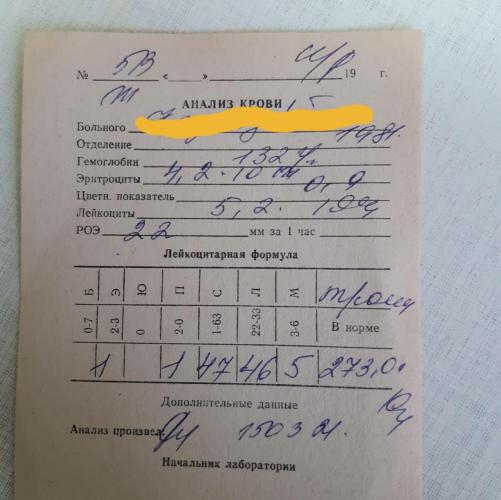 № 5В « » 19 г.
АНАЛИЗ КРОВИ
Больного
Отделение 1981.
Гемоглобин 132 г/
Эритроциты 4,2 · 10
Цветн. показатель 0,9
Лейкоциты 5,2 .
РОЭ 22 мм за 1 час
Лейкоцитарная формула
Б Э Ю П С Л М тром
0-7 2-3 0 2-0 1-63 22-33 3-6 В норме
1 1 47 46 5 273,0
Дополнительные данные
Анализ произвел:
Начальник лаборатории